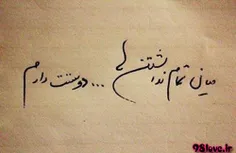 میانِ تمام نداشتن ها
... دوستت دارم
98love.ir